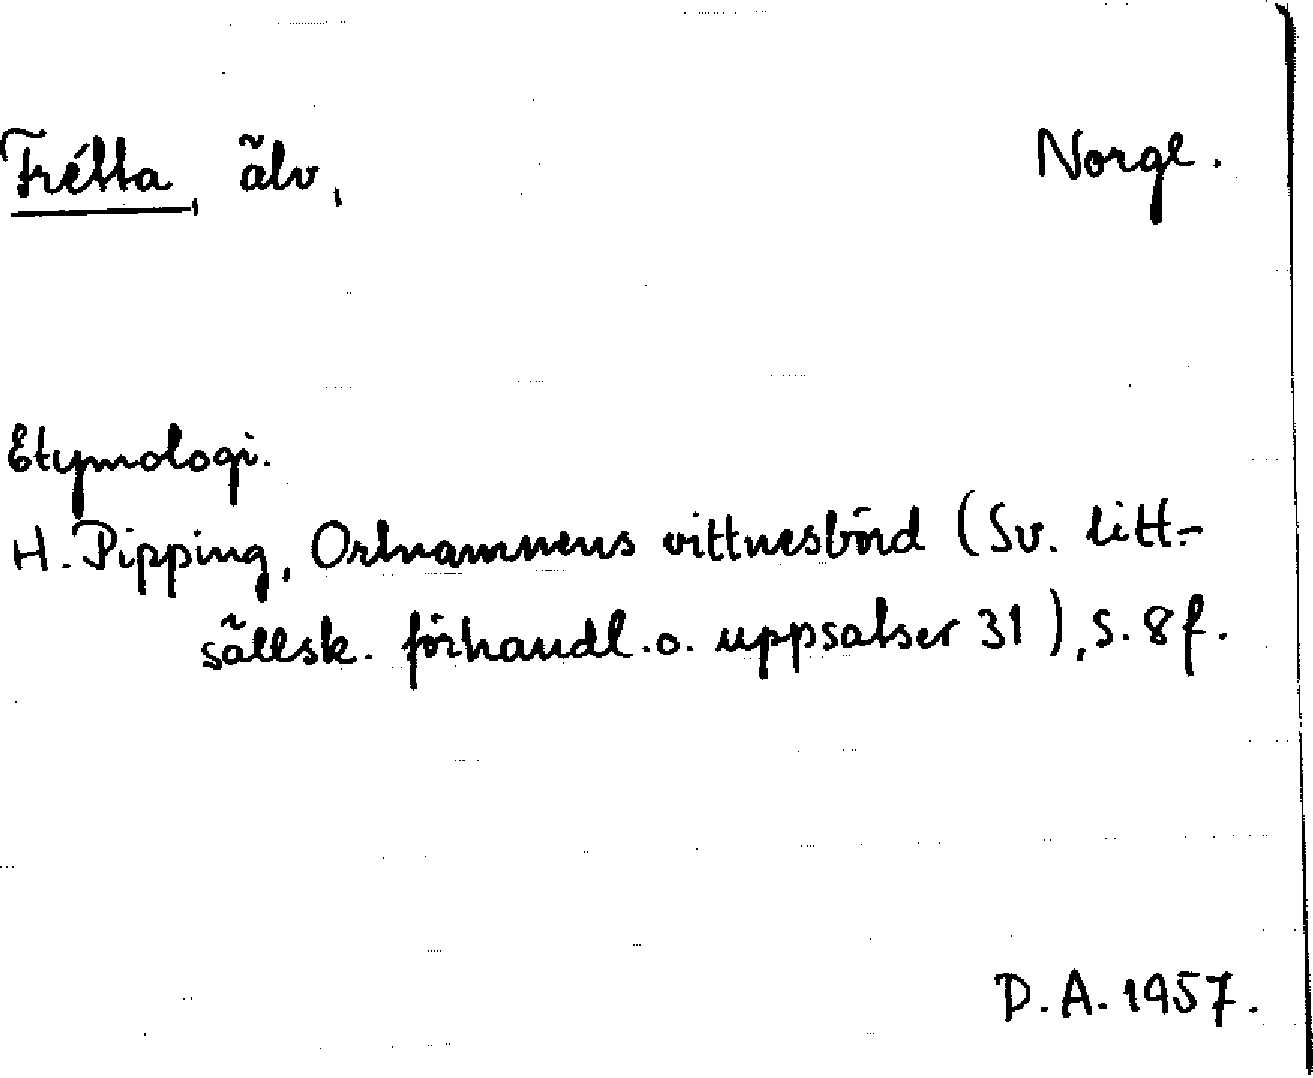 Frétta, älv, Norge.
Etymologi.
H. Pipping, Ortnamnens vittnesbörd (Sv. litt.-
sällsk. förhandl. o. uppsatser 31), s. 8 f.
D. A. 1957.